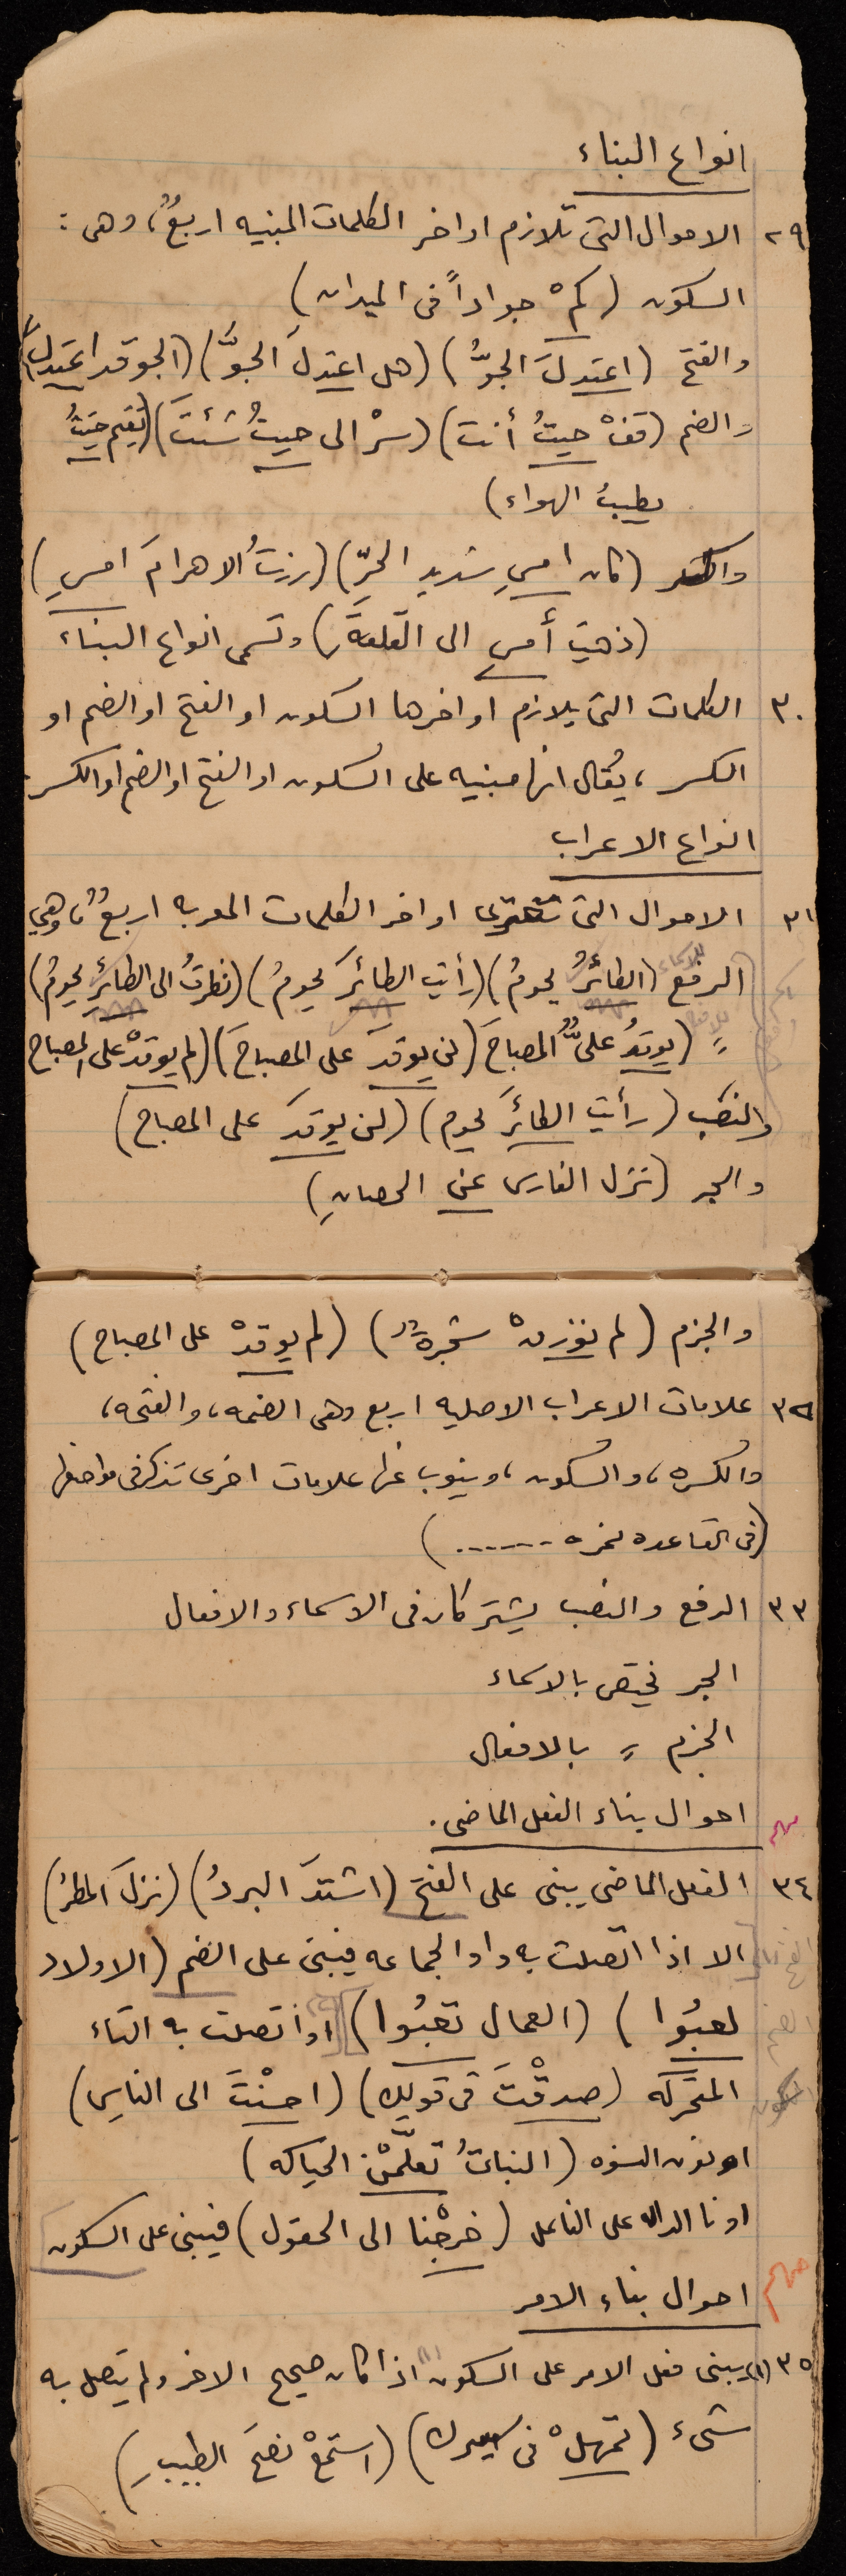 انواع البناء
٢٩ الاحوال التى تلازم اواخر الكلمات المبنيه اربعٌ، وهى :
السكون (كمْ جواداً فى الميدان)
والفتح (اعتدلَ الجوُّ) (هل اعتدلَ الجوُّ) (الجو قد اعتدلَ)
والضم (قفْ حيثُ أنت) (سرْ الى حيثُ شئتَ) (نقيم حيثُ
يطيبُ الهواء)
والكسر (كان امسِ شديد الحرِّ) (زرتُ الاهرامَ امسِ)
(ذهبت أمسِ الى القلعةِ) وتسمى انواع البناء
٣٠ الكلمات التى يلازم اواخرها السكون او الفتح او الضم او
الكسر، يُقال انها مبنيه على السكون او الفتح او الضم او الكسر
انواع الاعراب
٣١ الاحوال التى تعترى اواخر الكلمات المعربه اربعٌ، وهي
الرفع (الطائرُ يحومُ) (رأيت الطائرَ يحومُ) (نظرتُ الى الطائرِ يحومُ)
〃 (يوقدُ علىٌّ المصباحَ) (لن يوقدَ على المصباحَ) (لم يوقدْ على المصباح
والنصب (رأيت الطائرَ يحوم) (لن يوقدَ على المصباح)
والجر (نزل الفارس عن الحصانِ)
والجزم (لم نوزنْ شجرةٌ) (لم يوقدْ على المصباح)
٣٢ علامات الاعراب الاصليه اربع وهى الضمه، والفتحه،
والكسره، والسكون، وينوب عنها علامات اخرى تذكر فى مواضعها
(فى القاعده نمره ........)
٣٣ الرفع والنصب يشتركان فى الاسماء والافعال
الجر فيختص بالاسماء
الجزم 〃 بالافعال
مهم احوال بناء الفعل الماضى.
٣٤ الفعل الماضى يبنى على الفتح (اشتدَّ البردُ) (نزلَ المطرُ)
الا اذا اتصلت به واو الجماعه فيبنى على الضم (الاولاد
لعبُوا) (العمال تعبُوا) او اتصلت به التاء
المتحركه (صدقْتَ فى قولِك) (احسنْتَ الى الناسِ)
او نون النسوه (البناتُ تعلَّمْنَ الحياكه)
او نا الداله على الفاعل (خرجْنا الى الحقول) فيبنى على السكون
مهم احوال بناء الامر
٣٥ (١) يبنى فعل الامر على السكون اذا كان صحيح الاخر ولم يتصل به
شىء (تمهلْ فى سيرك) (استمعْ نصحَ الطبيبِ)